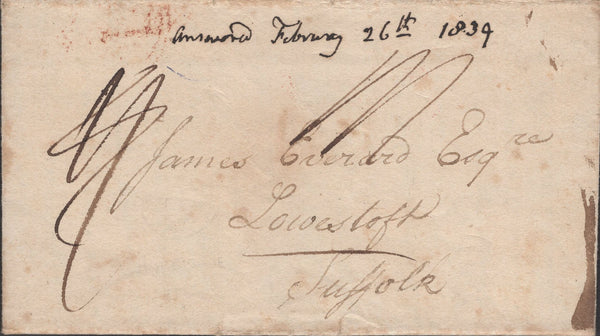 Answered February 26th 1834
James Everard Esqre
Lowestoft
Suffolk